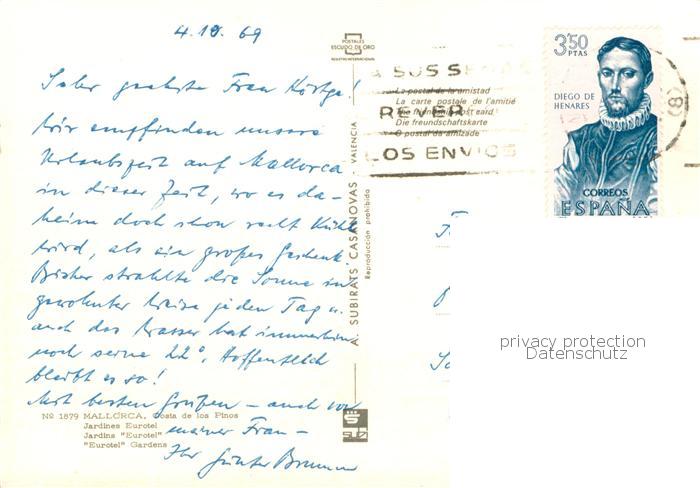 4.10.69
Sehr geehrte Frau Körtge!
Wir empfinden unsere
Urlaubszeit auf Mallorca
in dieser Zeit, wo es da-
heim doch schon recht kühl
wird, als ein großes Geschenk.
Bisher strahlte die Sonne in
gewohnter Weise jeden Tag u.
auch das Wasser hat immerhin
noch seine 22°. Hoffentlich
bleibt es so!
Mit besten Grüßen – auch von
meiner Frau –
Ihr Günter
Nº 1879 MALLORCA. Costa de los Pinos
Jardines Eurotel
Jardins "Eurotel"
"Eurotel" Gardens
POSTALES
ESCUDO DE ORO
A. SUBIRATS CASANOVAS - VALENCIA
Reproducción prohibida
La postal de la amistad
La carte postale de l'amitié
The friendship post card
Die freundschaftskarte
O postal da amizade
A SUS SEÑAS
LOS ENVIOS
3'50
PTAS
DIEGO DE
HENARES
CORREOS
ESPAÑA
privacy protection
Datenschutz